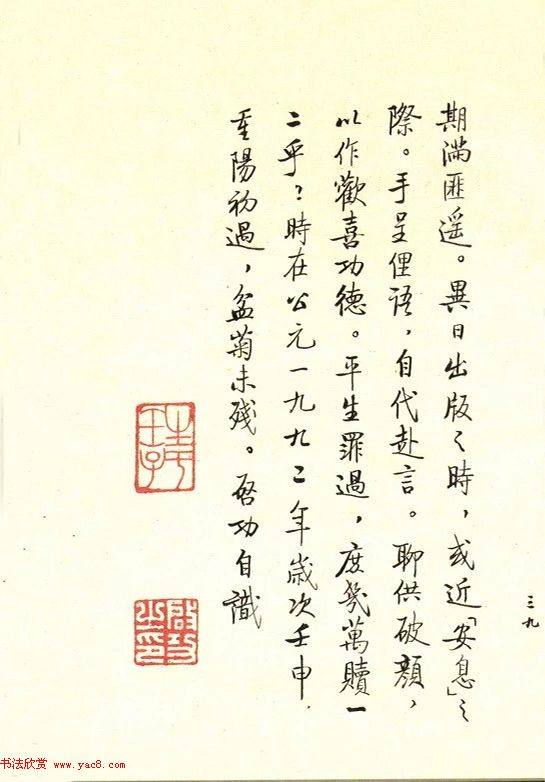 期滿匪遥。異日出版之時，或近「安息」之
際。手呈俚語，自代赴言。聊供破顏，
以作歡喜功德。平生罪過，庶幾萬贖一
二乎？時在公元一九九二年歲次壬申，
重陽初過，盆菊未殘。啓功自識
啟功之印
三九
书法欣赏 www.yac8.com